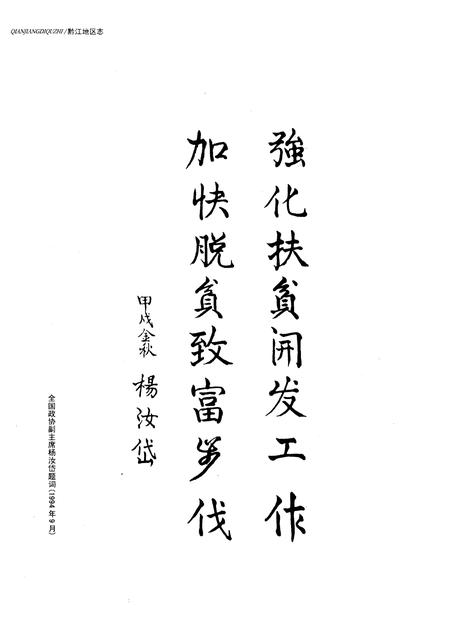 QIANJIANGDIQUZHI/黔江地区志
強化扶貧開发工作
加快脱貧致富步伐
甲戌金秋 楊汝岱
全国政协副主席杨汝岱题词(1994年9月)